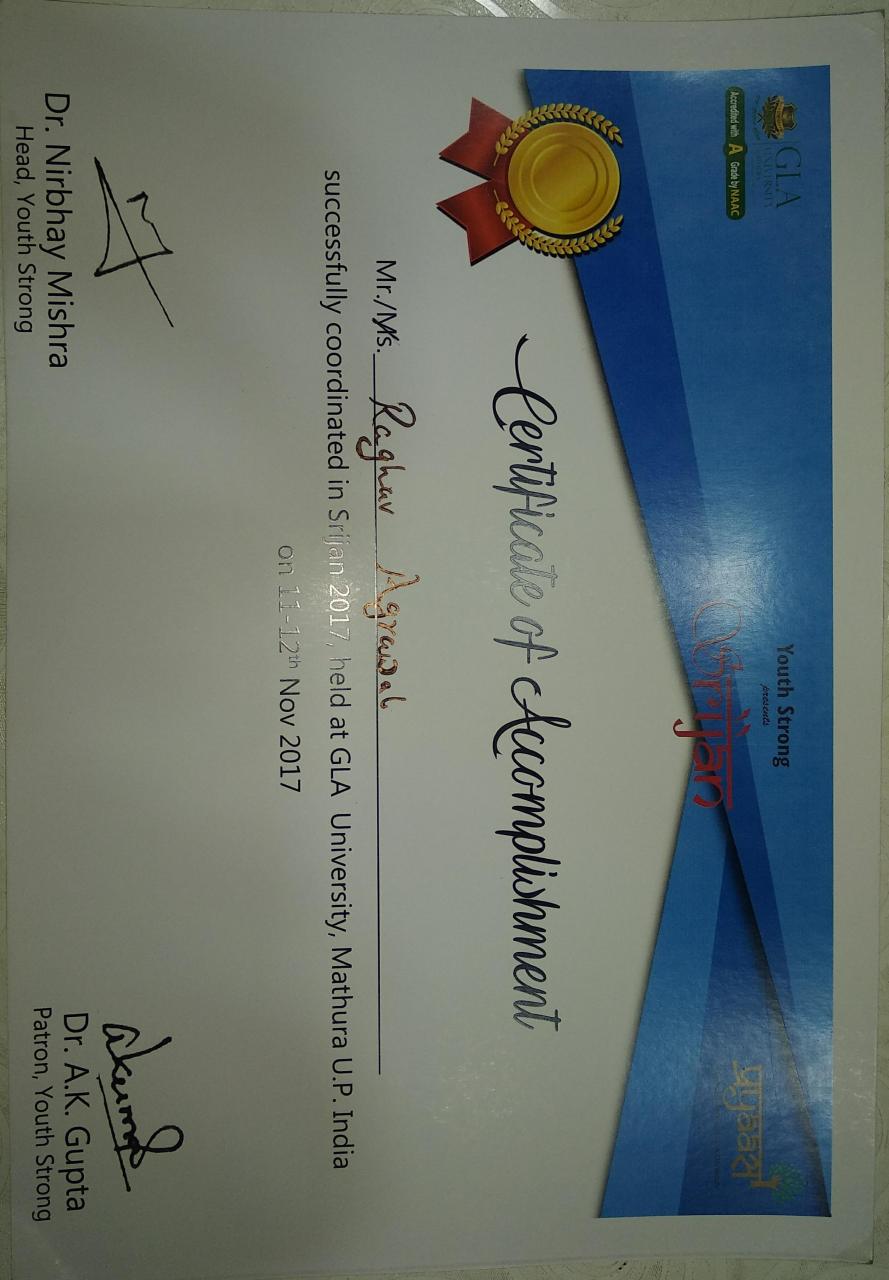 GLA
UNIVERSITY
Accredited with A Grade by NAAC
Youth Strong
presents
Srijan
prayaas
Certificate of Accomplishment
Mr./Ms. Raghav Agrawal
successfully coordinated in Srijan 2017, held at GLA University, Mathura U.P. India
on 11-12th Nov 2017
Dr. Nirbhay Mishra
Head, Youth Strong
akumar
Dr. A.K. Gupta
Patron, Youth Strong